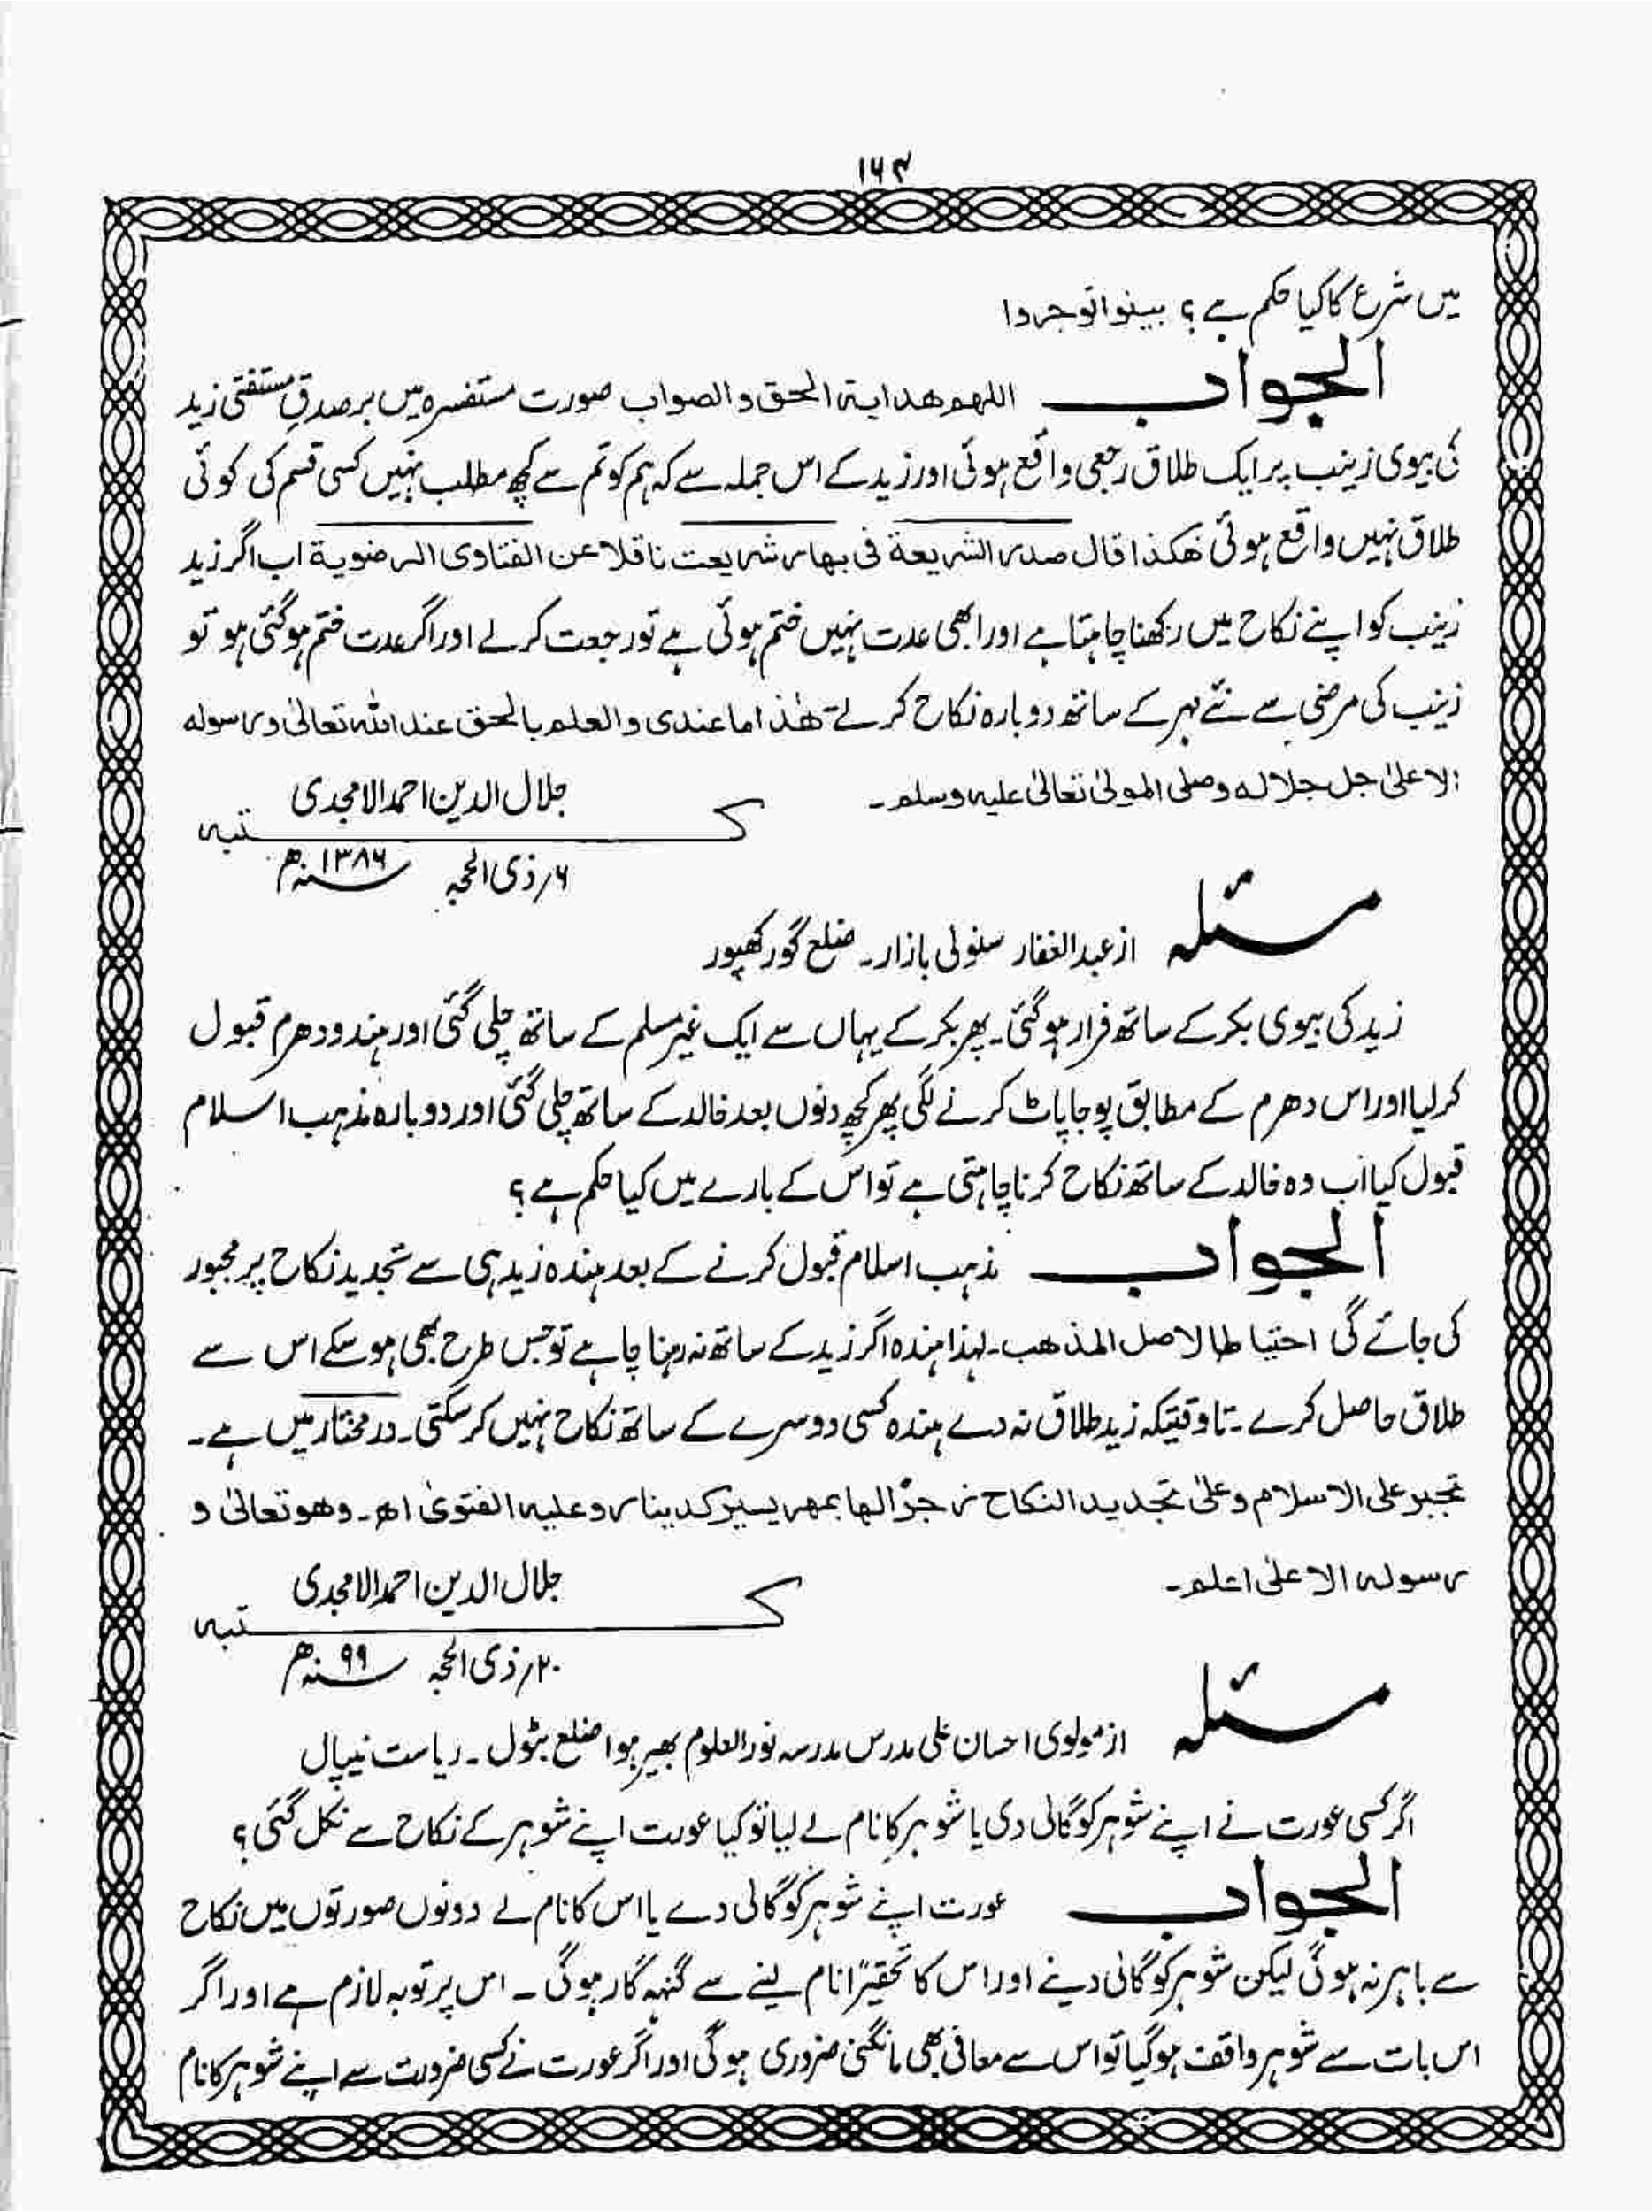 ۱۶۴
میں شرع کا کیا حکم ہے؟ بینوا توجروا
الجواب اللھم ھدایۃ الحق والصواب صورت مستفسرہ میں بر صدق مستفتی زید
کی بیوی زینب پر ایک طلاق رجعی واقع ہوئی اور زید کے اس جملہ سے کہ ہم کو تم سے کچھ مطلب نہیں کسی قسم کی کوئی
طلاق نہیں واقع ہوئی ھکذا قال صدر الشریعۃ فی بھار شریعت ناقلا عن الفتاوی الرضویۃ اب اگر زید
زینب کو اپنے نکاح میں رکھنا چاہتا ہے اور ابھی عدت نہیں ختم ہوئی ہے تو رجعت کرلے اور اگر عدت ختم ہوگئی ہو تو
زینب کی مرضی سے نئے مہر کے ساتھ دوبارہ نکاح کرلے۔ ھٰذا ما عندی والعلم بالحق عند اللہ تعالیٰ ورسولہ
الاعلیٰ جل جلالہ وصلی المولیٰ تعالیٰ علیہ وسلم۔
جلال الدین احمد الامجدی
کتبہ
۶؍ ذی الحجہ ۱۳۸۶ سنہ ھ
مسئلہ از عبد الغفار سنولی بازار۔ ضلع گورکھپور
زید کی بیوی بکر کے ساتھ فرار ہوگئی۔ پھر بکر کے یہاں سے ایک غیر مسلم کے ساتھ چلی گئی اور ہندو دھرم قبول
کرلیا اور اس دھرم کے مطابق پوجا پاٹ کرنے لگی پھر کچھ دنوں بعد خالد کے ساتھ چلی گئی اور دوبارہ مذہب اسلام
قبول کیا اب وہ خالد کے ساتھ نکاح کرنا چاہتی ہے تو اس کے بارے میں کیا حکم ہے؟
الجواب مذہب اسلام قبول کرنے کے بعد ہندہ زید ہی سے تجدید نکاح پر مجبور
کی جائے گی احتیاطا لاصل المذھب۔ لہذا ہندہ اگر زید کے ساتھ نہ رہنا چاہے تو جس طرح بھی ہوسکے اس سے
طلاق حاصل کرے۔ تا وقتیکہ زید طلاق نہ دے ہندہ کسی دوسرے کے ساتھ نکاح نہیں کرسکتی۔ در مختار میں ہے۔
تجبر علی الاسلام وعلیٰ تجدید النکاح زجرًا لھا بمھر یسیر کدینار وعلیہ الفتویٰ اھ۔ وھو تعالیٰ و
رسولہ الاعلیٰ اعلم۔
جلال الدین احمد الامجدی
کتبہ
۲۰؍ ذی الحجہ ۹۹ سنہ ھ
مسئلہ از مولوی احسان علی مدرس مدرسہ نور العلوم بھیرہوا ضلع بٹول۔ ریاست نیپال
اگر کسی عورت نے اپنے شوہر کو گالی دی یا شوہر کا نام لے لیا تو کیا عورت اپنے شوہر کے نکاح سے نکل گئی؟
الجواب عورت اپنے شوہر کو گالی دے یا اس کا نام لے دونوں صورتوں میں نکاح
سے باہر نہ ہوگی لیکن شوہر کو گالی دینے اور اس کا تحقیرًا نام لینے سے گنہہ گار ہوگی۔ اس پر توبہ لازم ہے اور اگر
اس بات سے شوہر واقف ہوگیا تو اس سے معافی بھی مانگنی ضروری ہوگی اور اگر عورت نے کسی ضرورت سے اپنے شوہر کا نام